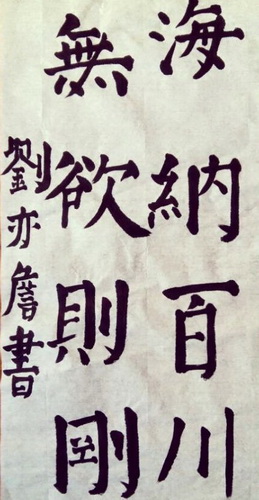 海納百川
無欲則剛
劉亦詹書